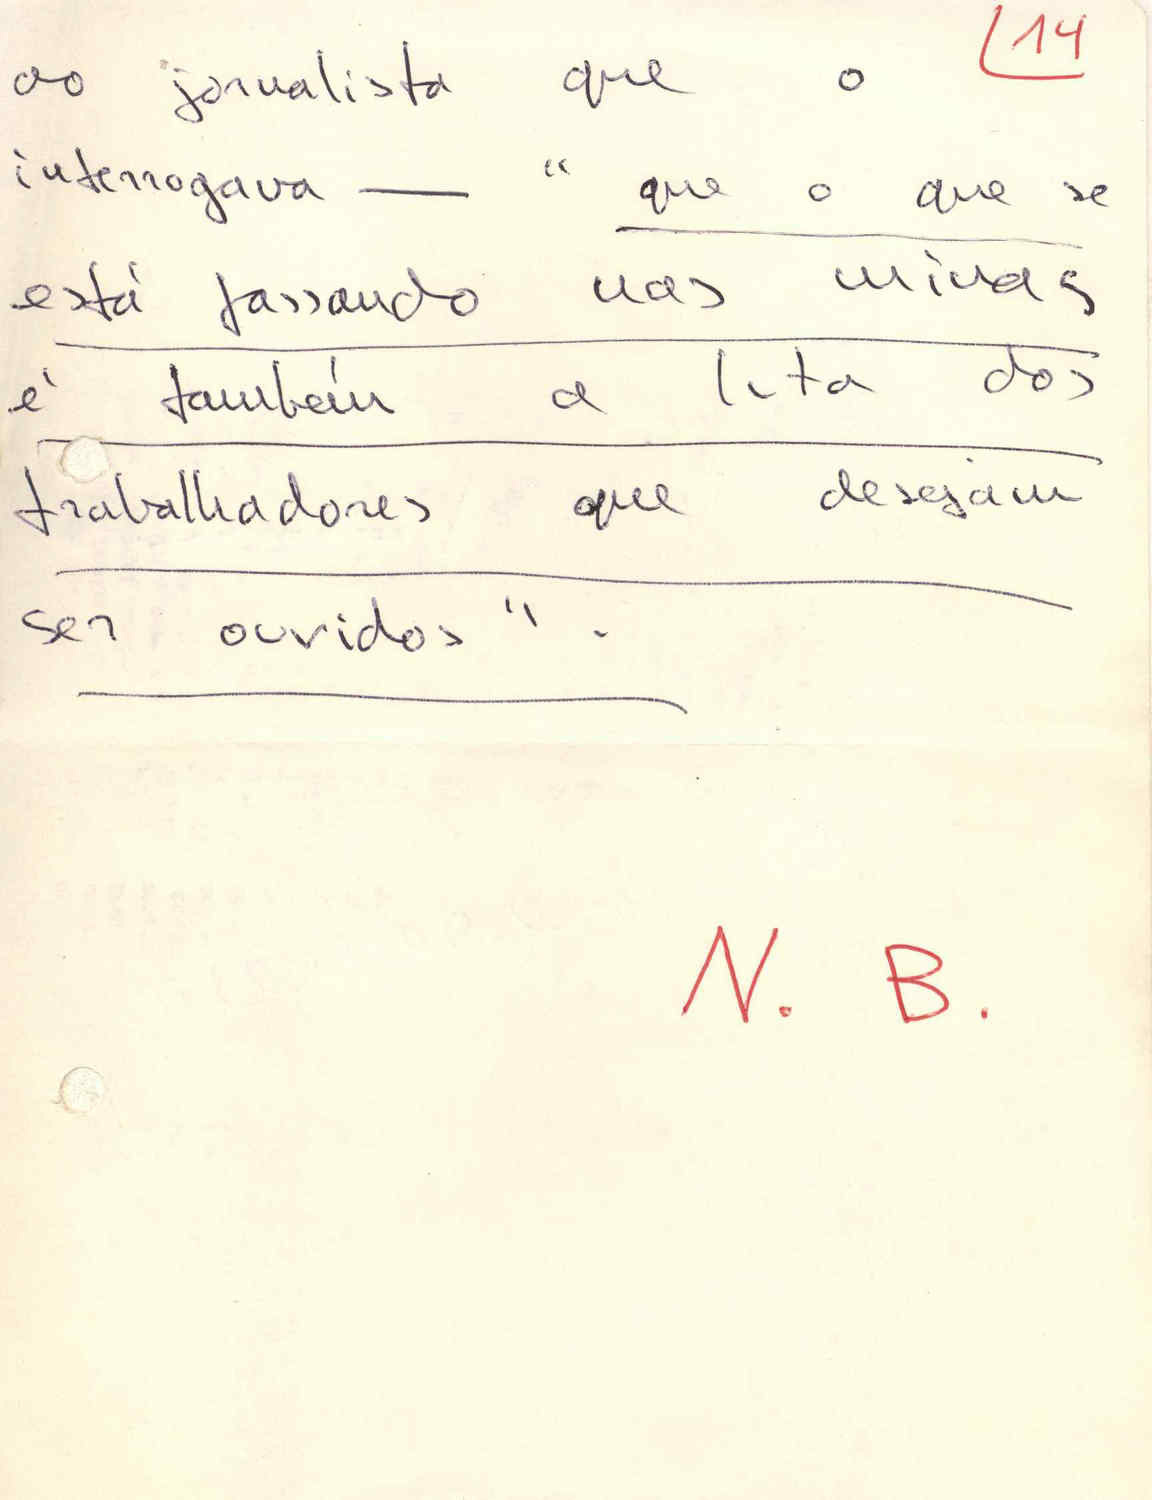 14
ao jornalista que o
interrogava — " que o que se
está passando nas minas
é também a luta dos
trabalhadores que desejam
ser ouvidos ".
N. B.